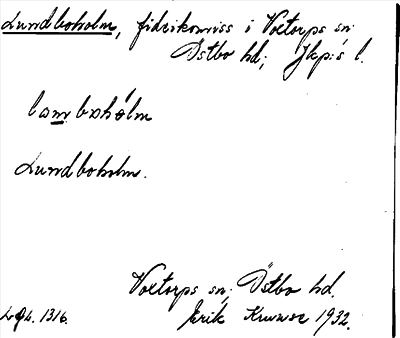 Lundboholm, fideikomiss i Voxtorps sn.
Östbo hd; Jkp:s l.
Lundboholm.
Voxtorps sn; Östbo hd.
Erik Kruuse 1932.